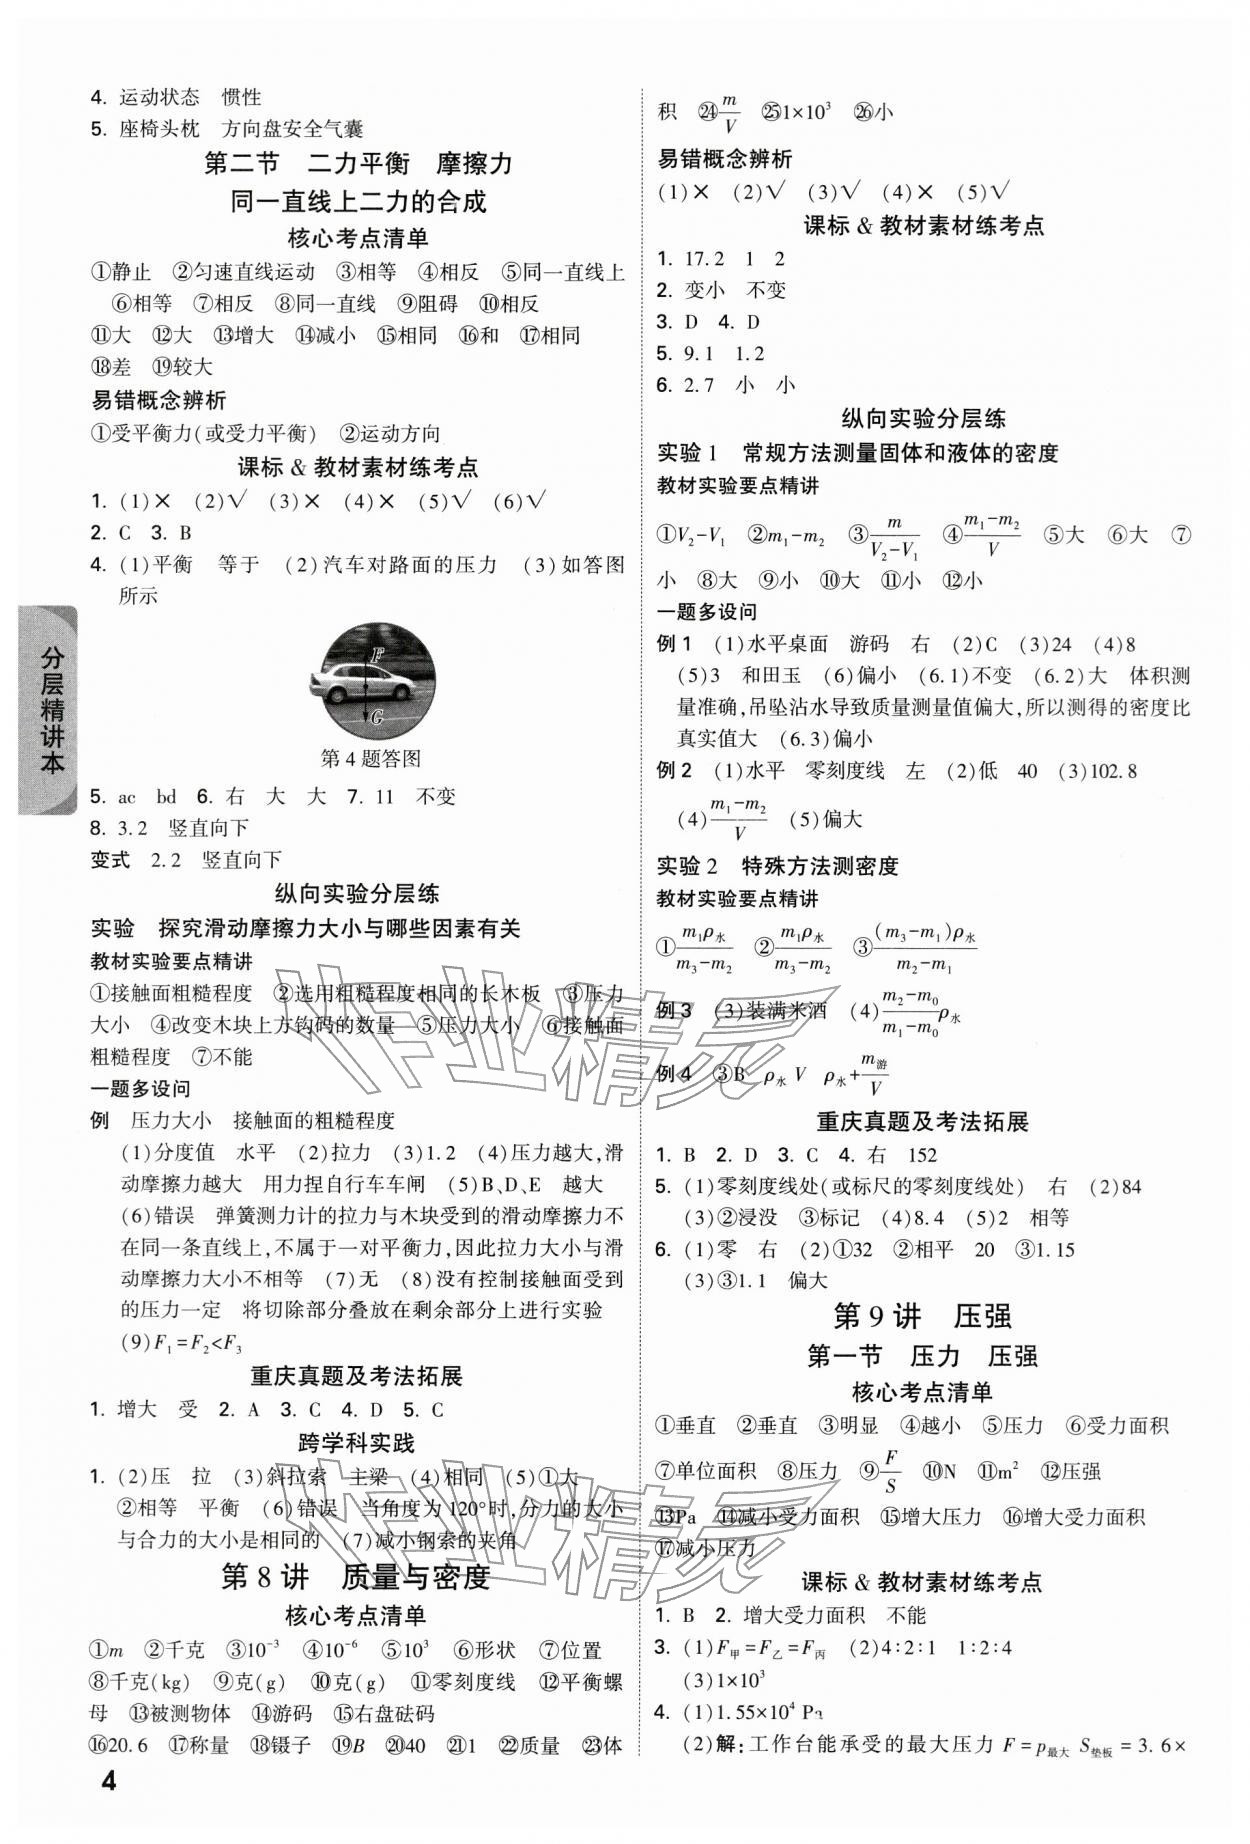 4. 运动状态　惯性
5. 座椅头枕　方向盘安全气囊
第二节　二力平衡　摩擦力
同一直线上二力的合成
核心考点清单
①静止　②匀速直线运动　③相等　④相反　⑤同一直线上
⑥相等　⑦相反　⑧同一直线　⑨阻碍　⑩相反
⑪大　⑫大　⑬增大　⑭减小　⑮相同　⑯和　⑰相同
⑱差　⑲较大
易错概念辨析
①受平衡力(或受力平衡)　②运动方向
课标 & 教材素材练考点
1. (1)×　(2)√　(3)×　(4)×　(5)√　(6)√
2. C　3. B
4. (1)平衡　等于　(2)汽车对路面的压力　(3)如答图
所示
F
G
第 4 题答图
5. ac　bd　6. 右　大　大　7. 11　不变
8. 3.2　竖直向下
变式　2.2　竖直向下
纵向实验分层练
实验　探究滑动摩擦力大小与哪些因素有关
教材实验要点精讲
①接触面粗糙程度　②选用粗糙程度相同的长木板　③压力
大小　④改变木块上方钩码的数量　⑤压力大小　⑥接触面
粗糙程度　⑦不能
一题多设问
例　压力大小　接触面的粗糙程度
(1)分度值　水平　(2)拉力　(3)1.2　(4)压力越大,滑
动摩擦力越大　用力捏自行车车闸　(5)B、D、E　越大
(6)错误　弹簧测力计的拉力与木块受到的滑动摩擦力不
在同一条直线上,不属于一对平衡力,因此拉力大小与滑
动摩擦力大小不相等　(7)无　(8)没有控制接触面受到
的压力一定　将切除部分叠放在剩余部分上进行实验
(9)F₁=F₂<F₃
重庆真题及考法拓展
1. 增大　受　2. A　3. C　4. D　5. C
跨学科实践
1. (2)压　拉　(3)斜拉索　主梁　(4)相同　(5)①大
②相等　平衡　(6)错误　当角度为120°时,分力的大小
与合力的大小是相同的　(7)减小钢索的夹角
第 8 讲　质量与密度
核心考点清单
①m　②千克　③10⁻³　④10⁻⁶　⑤10³　⑥形状　⑦位置
⑧千克(kg)　⑨克(g)　⑩克(g)　⑪零刻度线　⑫平衡螺
母　⑬被测物体　⑭游码　⑮右盘砝码
⑯20.6　⑰称量　⑱镊子　⑲B　⑳40　㉑1　㉒质量　㉓体
积　㉔m/V　㉕1×10³　㉖小
易错概念辨析
(1)×　(2)√　(3)√　(4)×　(5)√
课标 & 教材素材练考点
1. 17.2　1　2
2. 变小　不变
3. D　4. D
5. 9.1　1.2
6. 2.7　小　小
纵向实验分层练
实验 1　常规方法测量固体和液体的密度
教材实验要点精讲
①V₂-V₁　②m₁-m₂　③m/(V₂-V₁)　④(m₁-m₂)/V　⑤大　⑥大　⑦
小　⑧大　⑨小　⑩大　⑪小　⑫小
一题多设问
例 1　(1)水平桌面　游码　右　(2)C　(3)24　(4)8
(5)3　和田玉　(6)偏小　(6.1)不变　(6.2)大　体积测
量准确,吊坠沾水导致质量测量值偏大,所以测得的密度比
真实值大　(6.3)偏小
例 2　(1)水平　零刻度线　左　(2)低　40　(3)102.8
(4)(m₁-m₂)/V　(5)偏大
实验 2　特殊方法测密度
教材实验要点精讲
①m₁ρ水/(m₃-m₂)　②m₁ρ水/(m₃-m₂)　③(m₃-m₁)ρ水/(m₂-m₁)
例 3　(3)装满米酒　(4)(m₂-m₀)/(m₁-m₀)ρ水
例 4　③B　ρ水 V　ρ水+m游/V
重庆真题及考法拓展
1. B　2. D　3. C　4. 右　152
5. (1)零刻度线处(或标尺的零刻度线处)　右　(2)84
(3)②浸没　③标记　(4)8.4　(5)2　相等
6. (1)零　右　(2)①32　②相平　20　③1.15
(3)③1.1　偏大
第 9 讲　压强
第一节　压力　压强
核心考点清单
①垂直　②垂直　③明显　④越小　⑤压力　⑥受力面积
⑦单位面积　⑧压力　⑨F/S　⑩N　⑪m²　⑫压强
⑬Pa　⑭减小受力面积　⑮增大压力　⑯增大受力面积
⑰减小压力
课标 & 教材素材练考点
1. B　2. 增大受力面积　不能
3. (1)F甲=F乙=F丙　(2)4:2:1　1:2:4
(3)1×10³
4. (1)1.55×10⁴ Pa
(2)解:工作台能承受的最大压力 F=p最大 S垫板=3.6×
分层精讲本
4
作业精灵
作业精灵